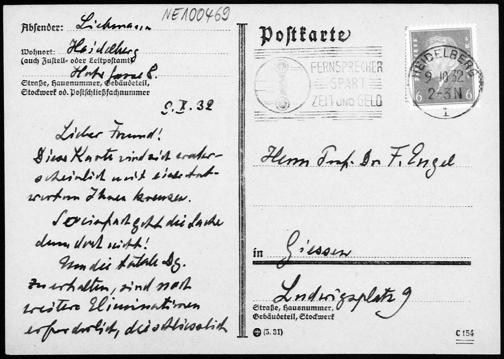 NE100469
Absender: Liebmann
Wohnort: Heidelberg
(auch Zustell- oder Leitpostamt)
Straße, Hausnummer, Gebäudeteil,
Stockwerk od. Postschließfachnummer
9. X. 32
Lieber Freund!
Diese Karte wird sich wahr-
scheinlich mit einer Ant-
wort von Ihnen kreuzen.
So einfach geht die Sache
denn doch nicht!
Um die totale Dg.
zu erhalten, sind noch
weitere Eliminationen
erforderlich, die schliesslich
Postkarte
FERNSPRECHER
SPART
ZEIT UND GELD
HEIDELBERG
9.10.32
2-3 N
1
6 6
Herrn Prof. Dr. F. Engel
in Giessen
Ludwigsplatz 9
Straße, Hausnummer,
Gebäudeteil, Stockwerk
(5. 31)
C 154